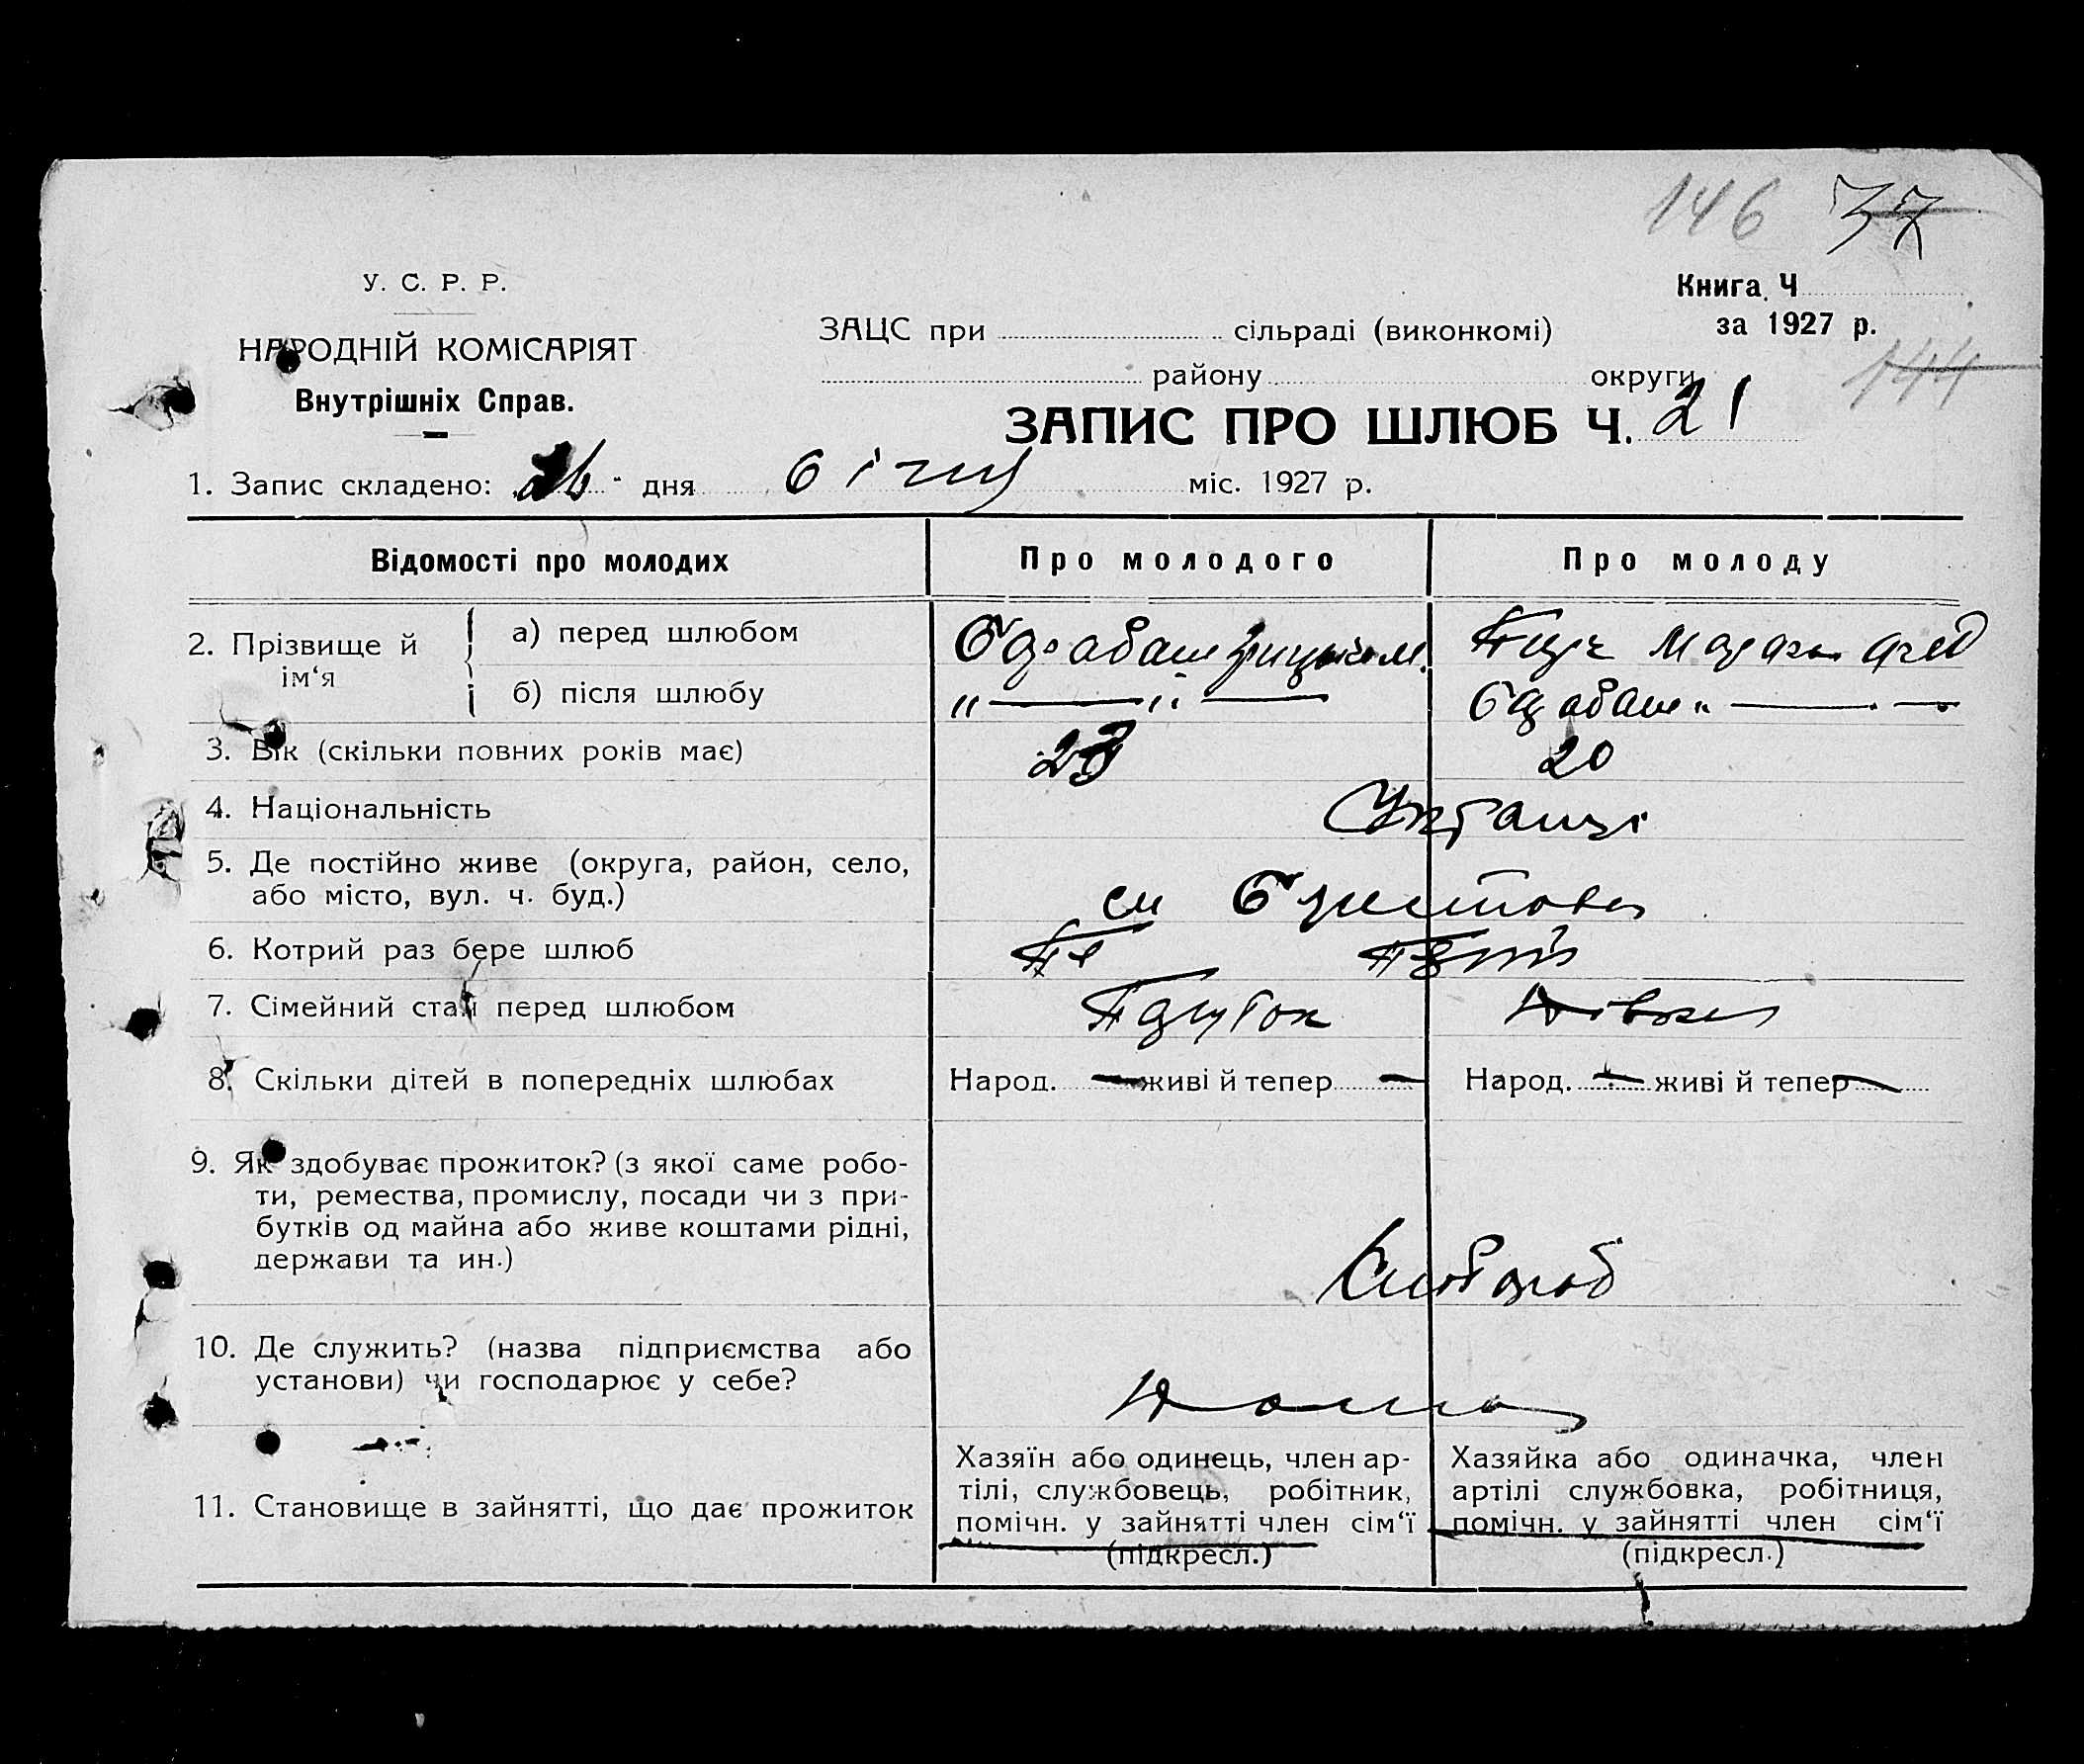 146 37
У. С. Р. Р.
НАРОДНІЙ КОМІСАРІЯТ
Внутрішніх Справ.
Книга Ч
за 1927 р.
ЗАЦС при сільраді (виконкомі)
району округи
144
ЗАПИС ПРО ШЛЮБ Ч. 21
1. Запис складено: 26 дня січня міс. 1927 р.
Відомості про молодих Про молодого Про молоду
2. Прізвище й ім‘я
а) перед шлюбом
б) після шлюбу
3. Вік (скільки повних років має) 23 20
4. Національність
5. Де постійно живе (округа, район, село,
або місто, вул. ч. буд.)
6. Котрий раз бере шлюб
7. Сімейний стан перед шлюбом Парубок Дівка
8. Скільки дітей в попередніх шлюбах Народ. — живі й тепер — Народ. — живі й тепер —
9. Як здобуває прожиток? (з якої саме робо-
ти, ремества, промислу, посади чи з при-
бутків од майна або живе коштами рідні,
держави та ин.)
Хлібороб
10. Де служить? (назва підприємства або
установи) чи господарює у себе?
Дома
11. Становище в зайнятті, що дає прожиток
Хазяїн або одинець, член ар-
тілі, службовець, робітник,
помічн. у зайнятті член сім‘ї
(підкресл.)
Хазяйка або одиначка, член
артілі службовка, робітниця,
помічн. у зайнятті член сім‘ї
(підкресл.)